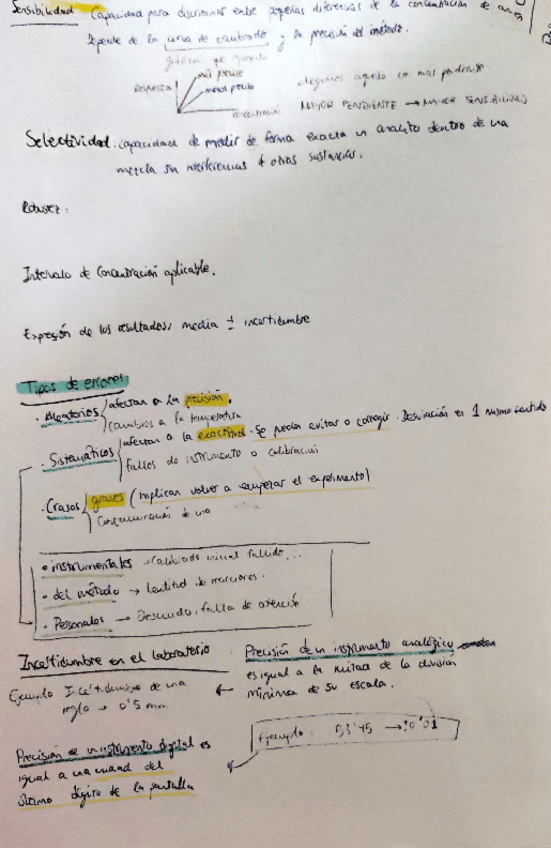 Sensibilidad. Capacidad para discriminar entre pequeñas diferencias de la concentración de
Depende de la curva de calibrado y la precisión del método.
más preciso
menos preciso
Respuesta
concentración
MAYOR PENDIENTE → MAYOR SENSIBILIDAD
Selectividad. Capacidad de medir de forma exacta un analito dentro de una
mezcla sin interferencias d otras sustancias.
Robustez:
Intervalo de Concentración aplicable.
Expresión de los resultados: media ± incertidumbre
Tipos de errores
· Aleatorios afectan a la precisión.
cambios a la temperatura
· Sistemáticos afectan a la exactitud. Se pueden evitar o corregir. Desviación en 1 mismo sentido
fallos de instrumento o calibración
· Crasos graves (implican volver a empezar el experimento)
Contaminación de una
• instrumentales → calibrado inicial fallido...
• del método → lentitud de reacciones.
• Personales → Descuido, falta de atención
Incertidumbre en el laboratorio
Precisión de un instrumento analógico
es igual a la mitad de la división
mínima de su escala.
Ejemplo Incertidumbre de una
regla → 0'5 mm
Ejemplo: 0'01
Precisión de un instrumento digital es
igual a una unidad del
último dígito de la pantalla